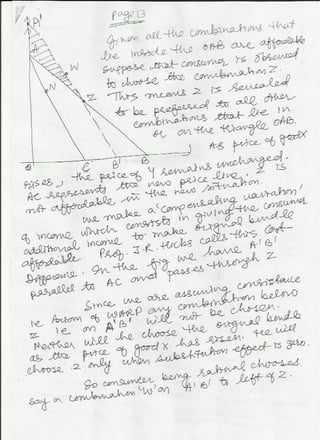 Page 13
Given all the combinations that
lie inside the OAB are affordable
suppose that consumer is observed
to choose the combination Z.
This means Z is revealed
to be preferred to all other
combinations that lie in
or on the triangle OAB.
As price of good X
rises, the price of Y remains unchanged.
AC represents the new price line. Z is
not affordable in the new situation.
We make a 'compensating variation'
of income which consists in giving the consumer
additional income to make original bundle
affordable. Prof. J.R. Hicks calls this Cost
Difference. In the fig we have A'B'
parallel to AC and passes through Z
Since we are assuming consistance
ie Axiom of WARP any combination below
Z ie on A'B' will not be chosen.
Neither will he choose the original bundle
as the price of good X has risen. He will
choose Z only when substitution effect is zero.
So consumer being rational chooses
say a combination 'W' on A'B' to left of Z.
A'
A
W
N
Z
O
C
B'
B